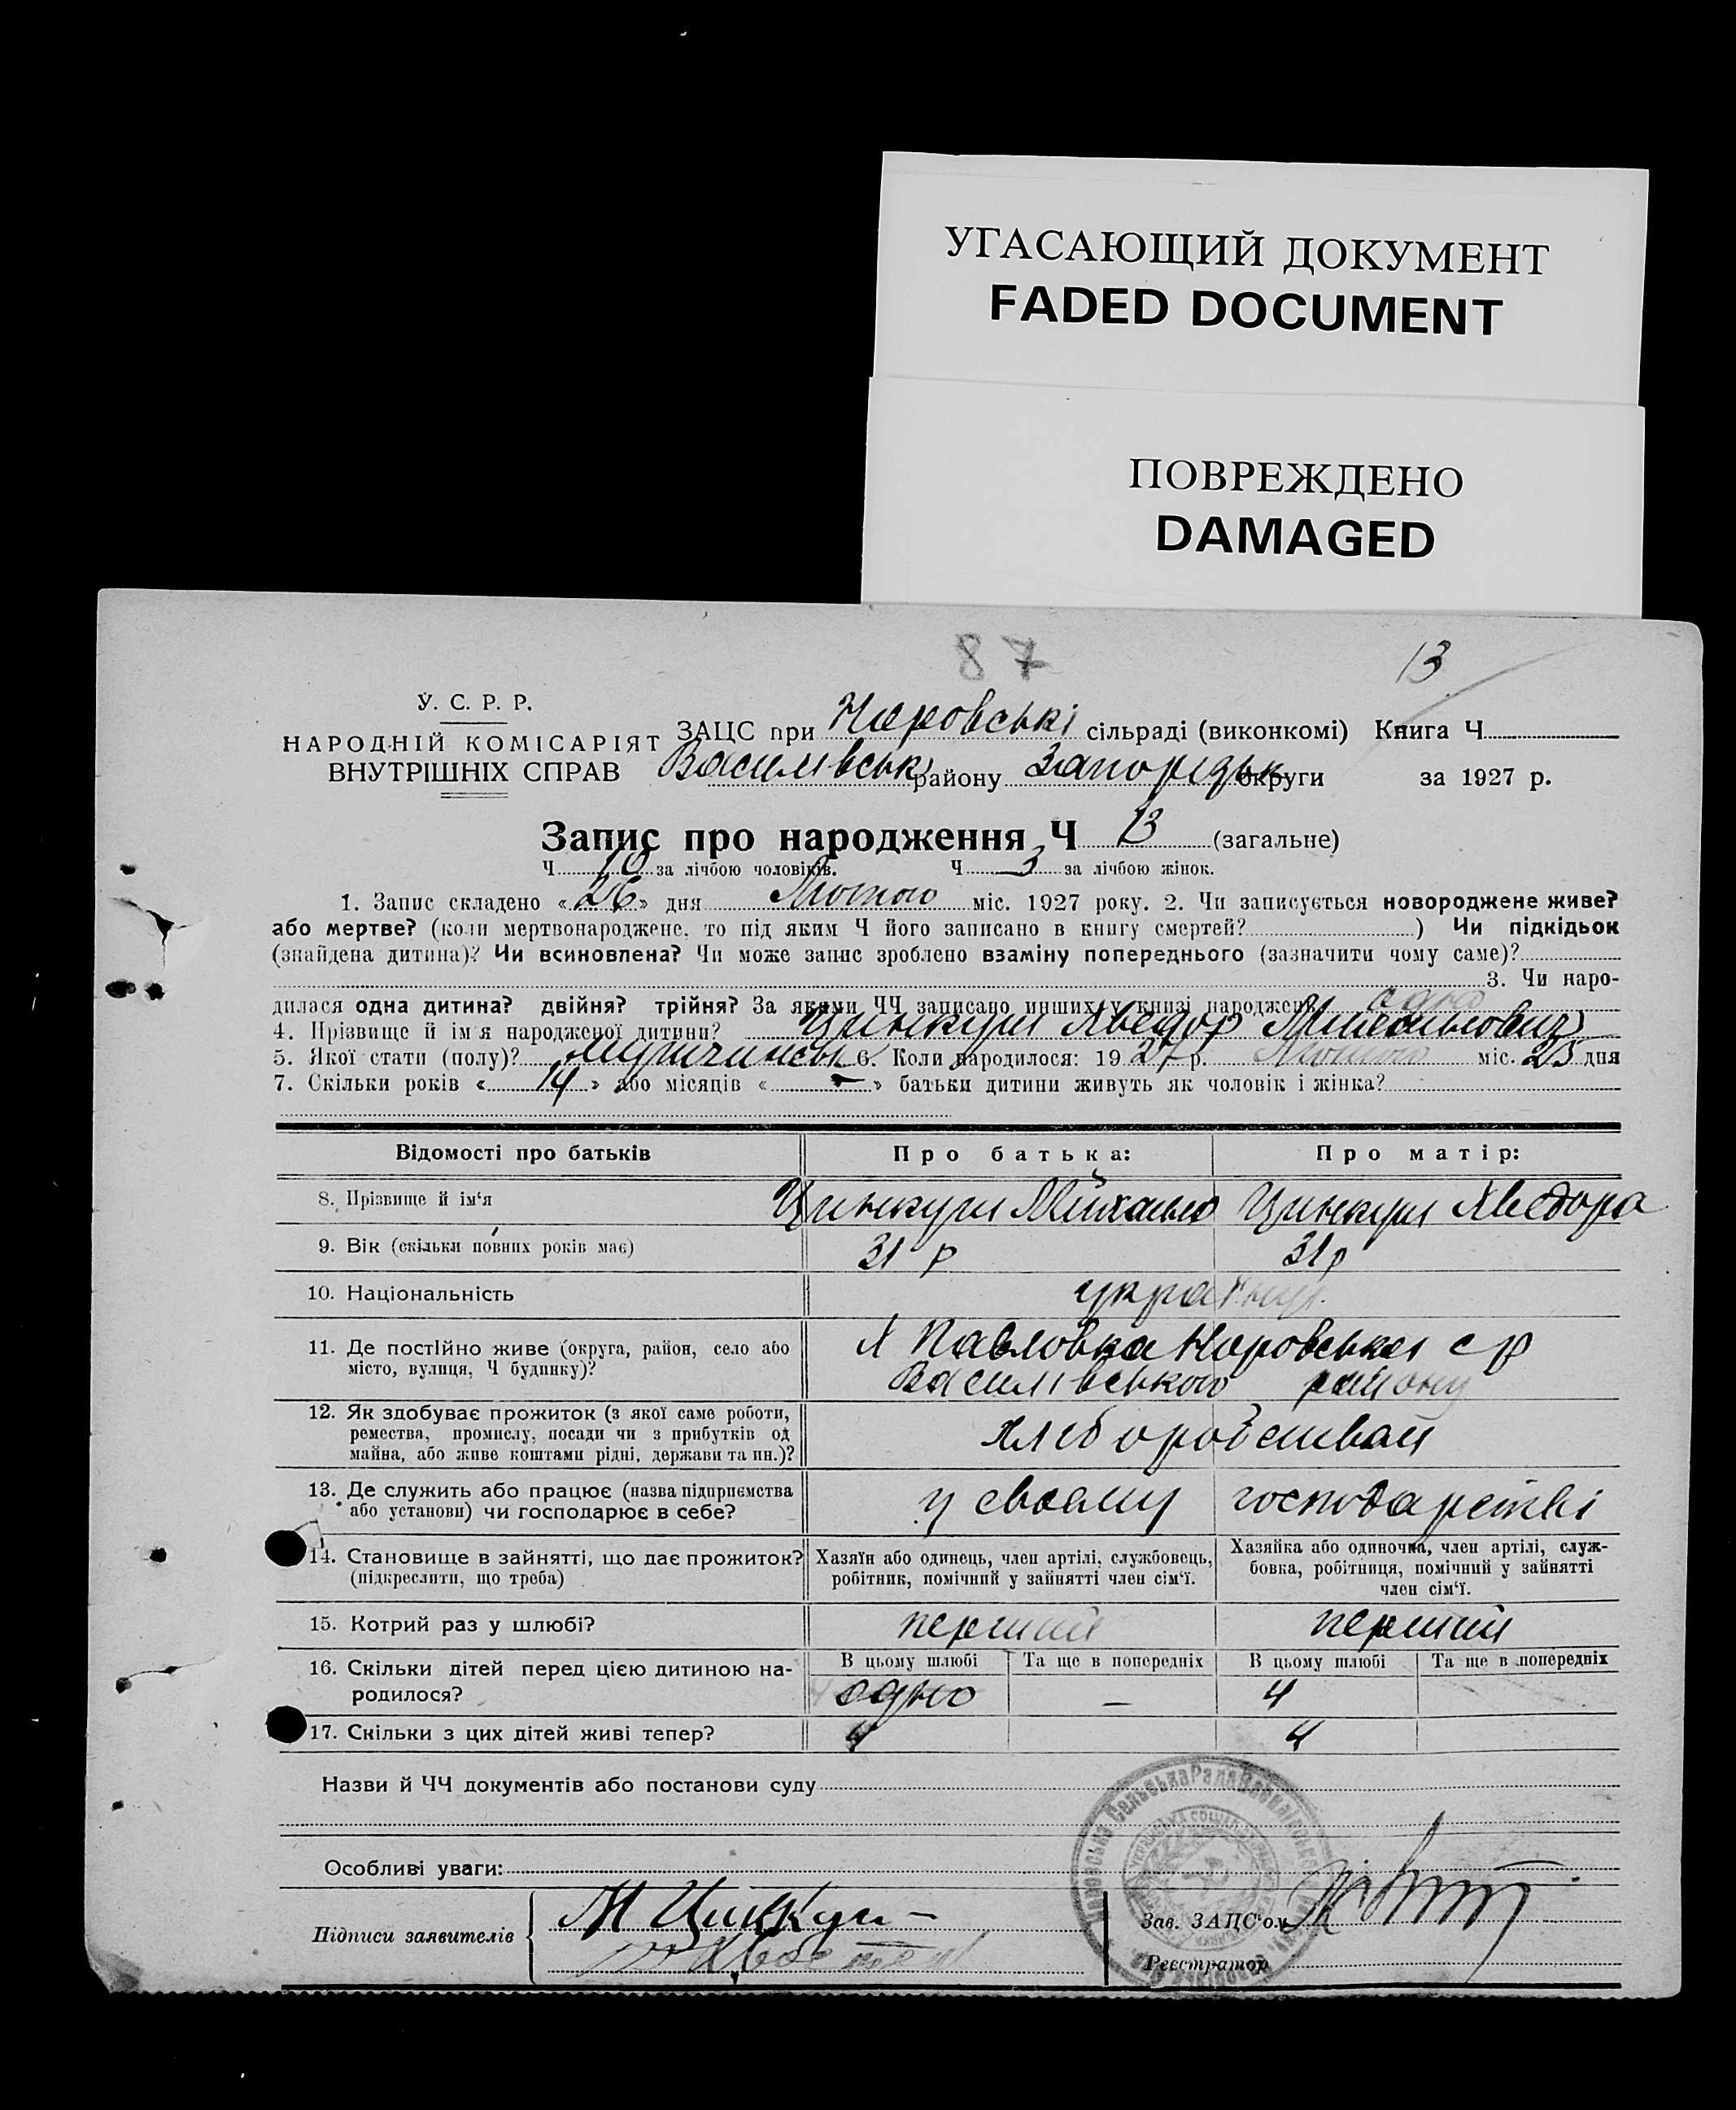 УГАСАЮЩИЙ ДОКУМЕНТ
FADED DOCUMENT
ПОВРЕЖДЕНО
DAMAGED
87
13
У. С. Р. Р.
НАРОДНІЙ КОМІСАРІЯТ
ВНУТРІШНІХ СПРАВ
ЗАЦС при сільраді (виконкомі) Книга Ч
Василівськ району Запорізьк округи за 1927 р.
Запис про народження Ч 13 (загальне)
Ч 10 за лічбою чоловіків. Ч 3 за лічбою жінок.
1. Запис складено «26» дня Лютого міс. 1927 року. 2. Чи записується новороджене живе?
або мертве? (коли мертвонароджене, то під яким Ч його записано в книгу смертей? ) Чи підкідьок
(знайдена дитина)? Чи всиновлена? Чи може запис зроблено взаміну попереднього (зазначити чому саме)?
3. Чи наро-
дилася одна дитина? двійня? трійня? За якими ЧЧ записано инших у книзі народжень одна
4. Прізвище й ім'я народженої дитини? Цинкуш Хведор
5. Якої стати (полу)? 6. Коли народилося: 1927 р. Лютого міс. 25 дня
7. Скільки років «14» або місяців «-» батьки дитини живуть як чоловік і жінка?
Відомості про батьків
Про батька:
Про матір:
8. Прізвище й ім'я
Цинкуш Михайло
Цинкуш Хведора
9. Вік (скільки повних років має)
31 р
31 р
10. Національність
україн
11. Де постійно живе (округа, район, село або
місто, вулиця, Ч будинку)?
Павловка с р
Василівського району
12. Як здобуває прожиток (з якої саме роботи,
ремества, промислу, посади чи з прибутків од
майна, або живе коштами рідні, держави та ин.)?
13. Де служить або працює (назва підприємства
або установи) чи господарює в себе?
у своєму господарстві
14. Становище в зайнятті, що дає прожиток?
(підкреслити, що треба)
Хазяїн або одинець, член артілі, службовець,
робітник, помічний у зайнятті член сім'ї.
Хазяйка або одиночка, член артілі, служ-
бовка, робітниця, помічний у зайнятті
член сім'ї.
15. Котрий раз у шлюбі?
перший
перший
16. Скільки дітей перед цією дитиною на-
родилося?
В цьому шлюбі
Та ще в попередніх
В цьому шлюбі
Та ще в попередніх
одно
–
4
17. Скільки з цих дітей живі тепер?
4
4
Назви й ЧЧ документів або постанови суду
Особливі уваги:
Підписи заявителів
М Цинкуш
Зав. ЗАЦС'ом
Реєстратор